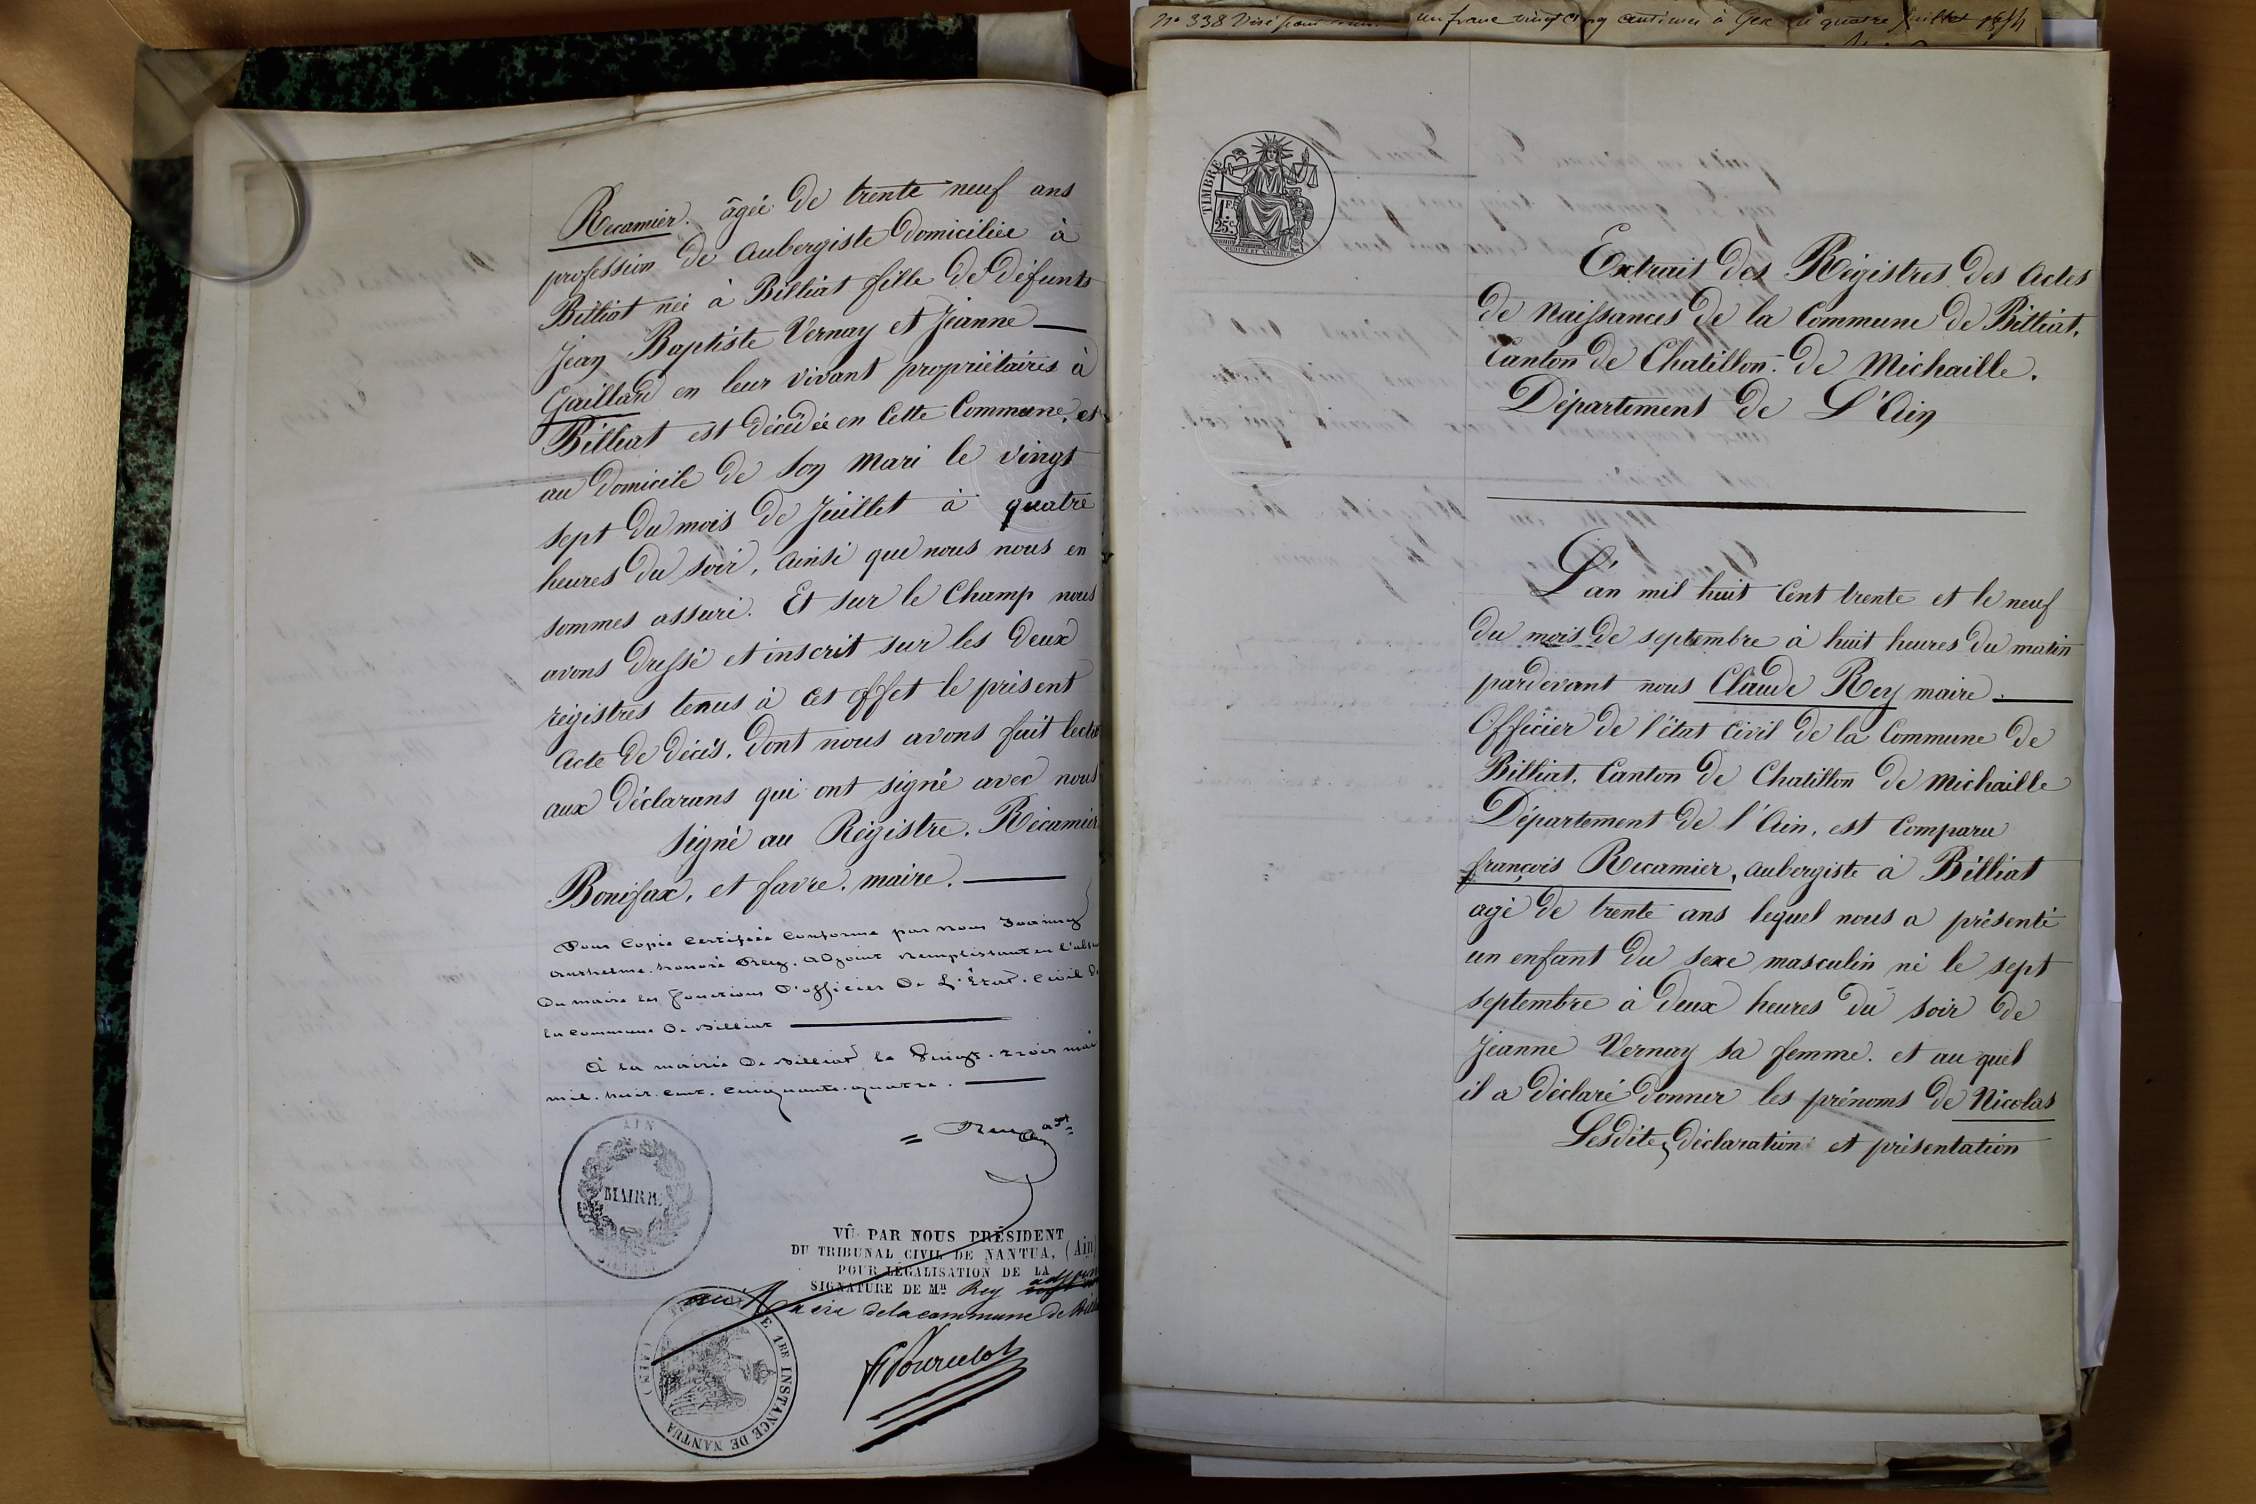 Recamier. âgée de trente neuf ans
profession de aubergiste domiciliée à
Billiat née à Billiat fille de défunts
Jean Baptiste Vernay et Jeanne
Gaillard en leur vivant propriétaires à
Billiat est décédée en cette Commune, et
au domicile de son mari le vingt
sept du mois de Juillet à quatre
heures du soir, ainsi que nous nous en
sommes assuré. Et sur le Champ nous
avons dressé et inscrit sur les deux
régistres tenus à cet effet le présent
acte de décès, dont nous avons fait
aux déclarans qui ont signé avec nous
signé au Régistre. Récamier
Bonifax, et favre, maire.
Pour Copie certifiée conforme par nous
honoré Rey, adjoint remplissant en
du maire les fonctions d'officier de L'État Civil de
la commune de Billiat
à la mairie de Billiat le Vingt trois mai
mil huit cent cinquante quatre.
= Rey adt =
AIN
MAIRIE
VÛ PAR NOUS PRÉSIDENT
DU TRIBUNAL CIVIL DE NANTUA, (Ain)
POUR LÉGALISATION DE LA
SIGNATURE DE MR Rey
de la commune de
1RE INSTANCE DE NANTUA (AIN)
No 338 Visé pour un franc vingt cinq centimes à Gex le quatre juillet
TIMBRE
1F.
25C
Extrait des Régistres des actes
de Naissances de la Commune de Billiat,
Canton de Chatillon-de Michaille.
Département de L'Ain
L'an mil huit cent trente et le neuf
du mois de septembre à huit heures du matin
pardevant nous Claude Rey maire
Officier de l'état Civil de la Commune de
Billiat, Canton de Chatillon de Michaille
Département de l'Ain, est Comparu
françois Recamier, aubergiste à Billiat
agé de trente ans lequel nous a présenté
un enfant du sexe masculin né le sept
septembre à deux heures du soir de
Jeanne Vernay sa femme. et au quel
il a déclaré donner les prénoms de Nicolas
Lesdites déclaration et présentation